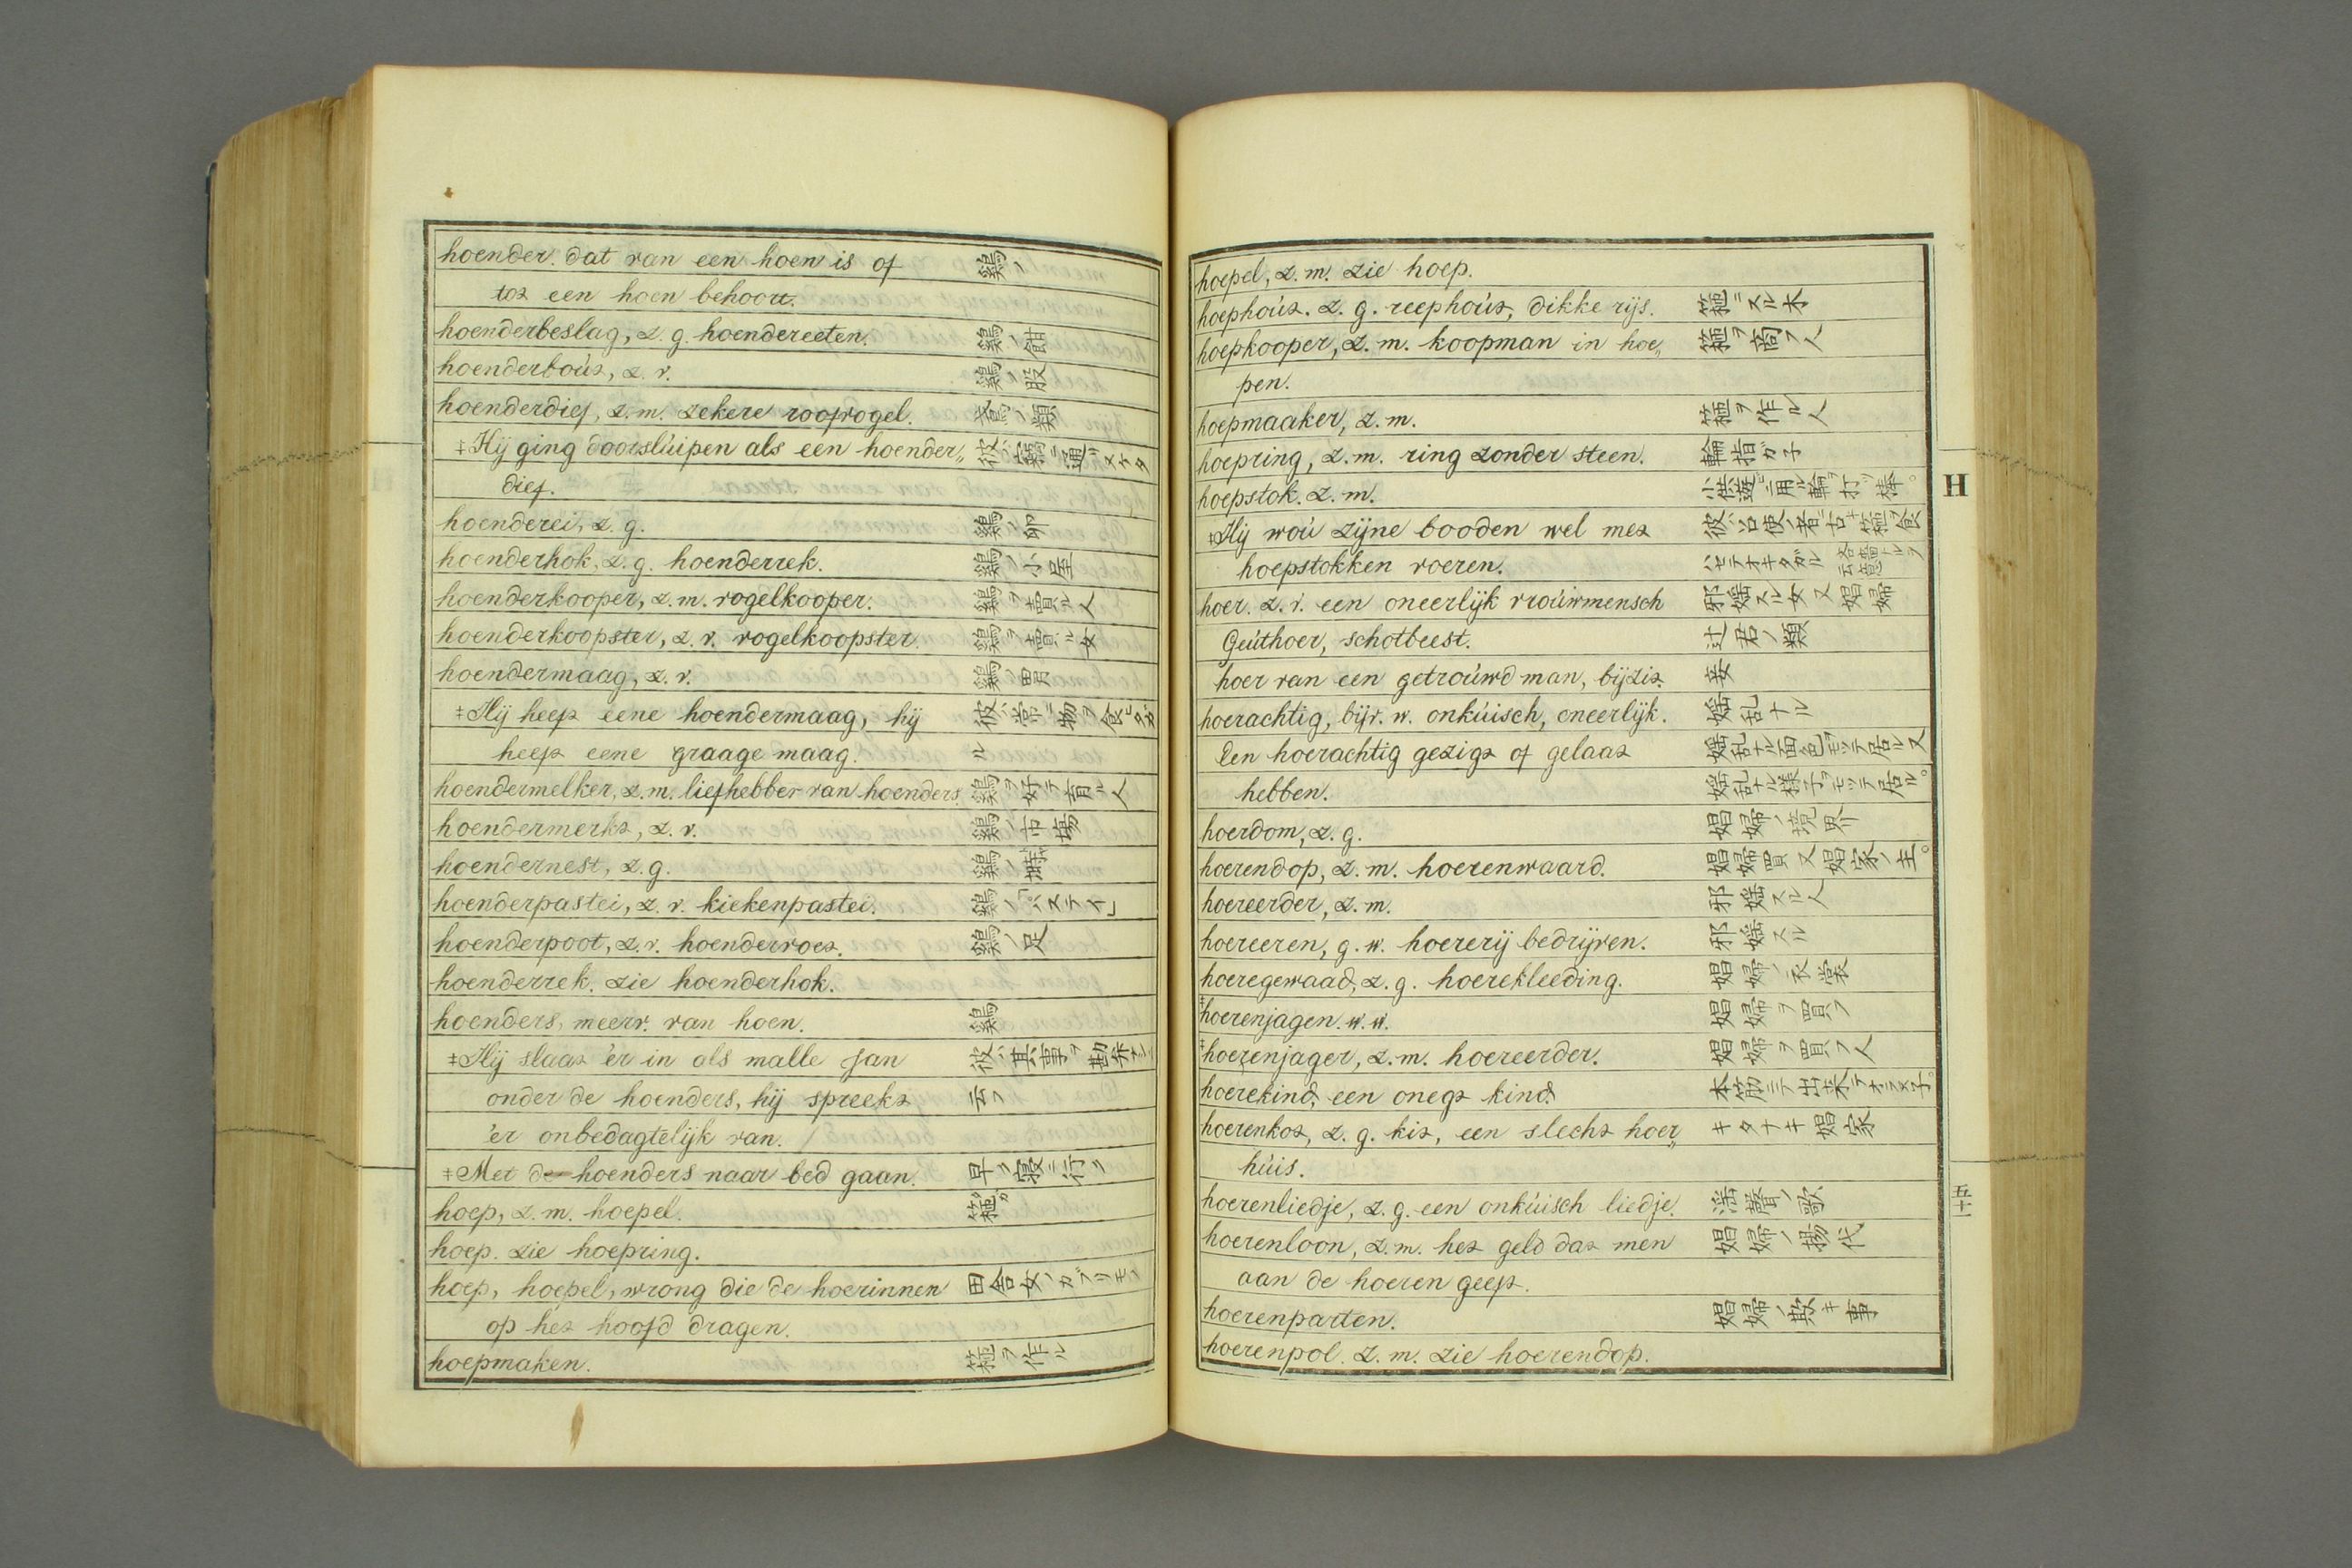 hoender. dat van een hoen is of 鶏ノ
tot een hoen behoort.
hoenderbeslag, z. g. hoendereeten. 鶏ノ餌
hoenderboút, z. v. 鶏ノ股
hoenderdief, z. m. zekere roofvogel. 類
‡Hij ging doorslúipen als een hoender„ 彼ハ窃ニ通ヌケタ
dief.
hoenderei, z. g. 鶏ノ卵
hoenderhok, z. g. hoenderrek. 鶏ノ小屋
hoenderkooper, z. m. vogelkooper. 鶏ヲ賣ル人
hoenderkoopster, z. v. vogelkoopster. 鶏ヲ賣ル女
hoendermaag, z. v. 鶏ノ胃
‡Hij heeft eene hoendermaag, hij 彼ハ常ニ物ヲ食ヒタガ
heeft eene graage maag. ル
hoendermelker, z. m. liefhebber van hoenders 鶏ヲ好テ育ル人
hoendermerkt, z. v. 鶏ノ市場
hoendernest, z. g. 鶏ノ塒
hoenderpastei, z. v. kiekenpastei. 鶏ノ「パステイ」
hoenderpoot, z. v. hoendervoet. 鶏ノ足
hoenderrek. zie hoenderhok.
hoenders, meerv. van hoen. 鶏
‡Hij slaat 'er in als malle Jan 彼ハ其事ヲ勘弁ナシニ
onder de hoenders, hij spreekt 云フ
'er onbedagtelijk van.
‡Met de hoenders naar bed gaan. 早ク寝ニ行ク
hoep, z. m. hoepel. 箍
hoep. zie hoepring.
hoep, hoepel, wrong die de boerinnen 田舎女ノカブリモノ
op het hoofd dragen.
hoepmaken. 箍ヲ作ル
hoepel, z. m. zie hoep.
hoephoút. z. g. reephoút, dikke rijs. 箍ニスル木
hoepkooper, z. m. koopman in hoe„ 箍ヲ商フ人
pen.
hoepmaaker, z. m. 箍ヲ作ル人
hoepring, z. m. ring zonder steen. 輪指ガ子
hoepstok. z. m. 小供遊ニ用ル輪ヲ打ツ棒。
‡Hij woú zijne booden wel met 彼ハ召使ノ者ニ古キ箍ヲ食
hoepstokken voeren. ハセテオキタガル
hoer. z. v. een oneerlijk vroúwmensch 邪婬スル女又娼婦
Geúthoer, schotbeest. 辻君ノ類
hoer van een getroúwd man, bijzit. 妾
hoerachtig, bijv. w. onkúisch, oneerlijk. 婬乱ナル
Een hoerachtig gezigt of gelaat 婬乱ナル面色ヲモツテ居ル又
hebben. 婬乱ナル様子ヲモツテ居ル。
hoerdom, z. g. 娼婦ノ境界
hoerendop, z. m. hoerenwaard. 娼婦買又娼家ノ主。
hoereerder, z. m. 邪婬スル人
hoereeren, g. w. hoererij bedrijven. 邪婬スル
hoeregewaad, z. g. hoerekleeding. 娼婦ノ衣裳
‡hoerenjagen. w. w. 娼婦ヲ買フ
‡hoerenjager, z. m. hoereerder. 娼婦ヲ買フ人
hoerekind, een onegt kind. 本筋ニテ出来テオラヌ子。
hoerenkot, z. g. kit, een slecht hoer„ キタナキ娼家
húis.
hoerenliedje, z. g. een onkúisch liedje. 淫聲ノ歌
hoerenloon, z. m. het geld dat men 娼婦ノ揚代
aan de hoeren geeft.
hoerenparten. 娼婦ノ欺キ事
hoerenpol. z. m. zie hoerendop.
H
五十二